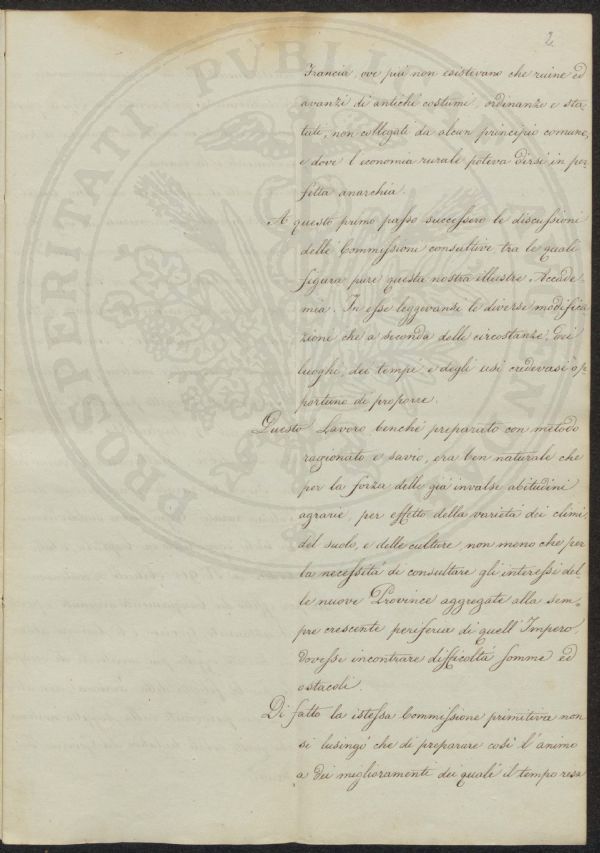 2
Francia, ove più non esistevano che ruine ed
avanzi di antichi costumi, ordinanze e sta-
tuti, non collegati da alcun principio comune,
e dove l'economia rurale poteva dirsi in per-
fetta anarchia.
A questo primo passo successero le discussioni
delle Commissioni consultive tra le quali
figura pure questa nostra illustre Accade-
mia. In esse leggevansi le diverse modifica
zioni che a seconda delle circostanze, dei
luoghi, dei tempi, e degli usi credevasi op-
portuno di proporre.
Questo Lavoro benchè preparato con metodo
ragionato e savio, era ben naturale che
per la forza delle già invalse abitudini
agrarie, per effetto della varietà dei climi,
del suolo, e delle culture, non meno che per
la necessità di consultare gli interessi del
le nuove Province aggregate alla sem-
pre crescente periferia di quell'Impero,
dovesse incontrare difficoltà somme ed
ostacoli.
Di fatto la istessa Commissione primitiva non
si lusingò che di preparare così l'animo
a dei miglioramenti dei quali il tempo resa
PROSPERITATI PVBLICAE